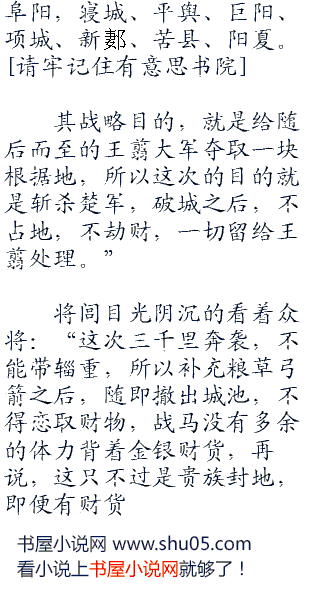 阜阳，寝城、平舆、巨阳、
项城、新郪、苦县、阳夏。
[请牢记住有意思书院]
其战略目的，就是给随
后而至的王翦大军夺取一块
根据地，所以这次的目的就
是斩杀楚军，破城之后，不
占地，不劫财，一切留给王
翦处理。”
将闾目光阴沉的看着众
将：“这次三千里奔袭，不
能带辎重，所以补充粮草弓
箭之后，随即撤出城池，不
得恋取财物，战马没有多余
的体力背着金银财货，再
说，这只不过是贵族封地，
即便有财货
书屋小说网 www.shu05.com
看小说上书屋小说网就够了！